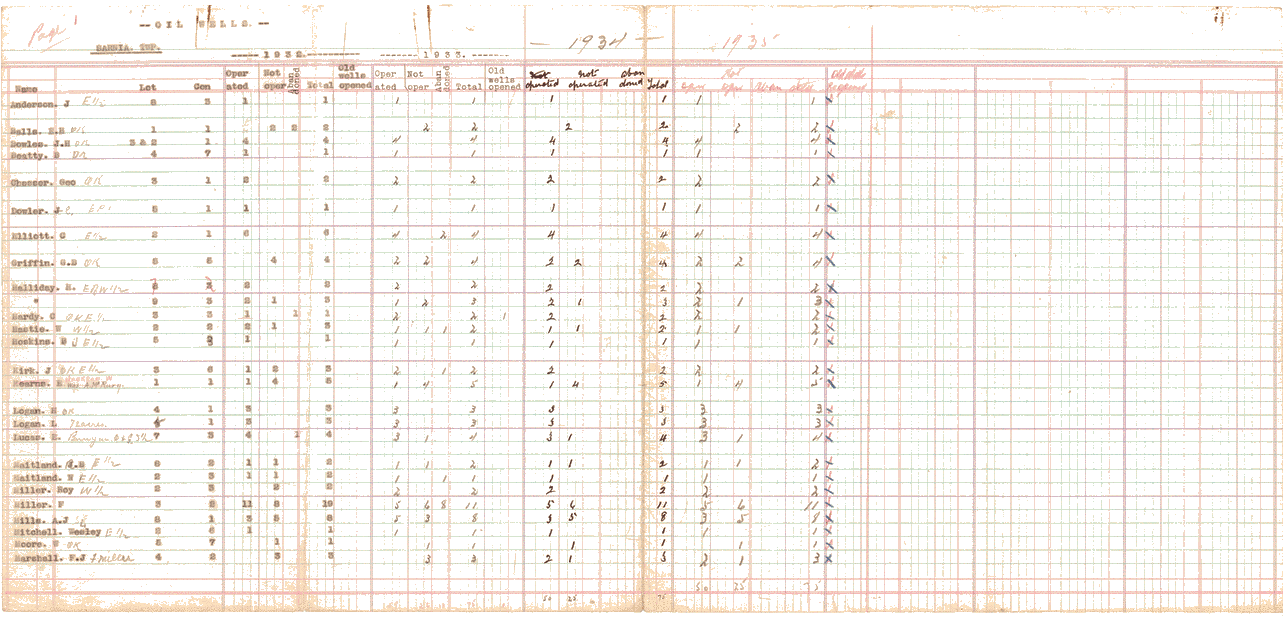 Page 1
-- OIL WELLS. --
SARNIA. TWP.
----- 1932.---------- ------- 1933.------- — 1934 — 1935
Name Lot Con Oper ated Not oper Aban doned Total Old wells opened Oper ated Not oper Aban doned Total Old wells opened operated not operated aban doned Total Oper Not oper Aban
Anderson. J E½ 8 3 1 1 1 1 1 1 1 1 x
Balls. E.H OK 1 1 2 2 2 2 2 2 2 2 2 x
Bowles. J.H OK 3 & 2 1 4 4 4 4 4 4 4 4 x
Beatty. B OK 4 7 1 1 1 1 1 1 1 1 x
Chesser. Geo OK 3 1 2 2 2 2 2 2 2 2 x
Dowler. J 5 1 1 1 1 1 1 1 1 1 x
Elliott. G E½ 2 1 6 6 4 2 4 4 4 4 4 x
Griffin. G.B OK 5 5 4 4 2 2 4 2 2 4 2 2 4 x
Halliday. E. 2 2 2 2 2 2 2 2 x
" 9 3 2 1 3 1 2 3 2 1 3 2 1 3 x
Hardy. C OK E½ 3 3 1 1 1 2 2 1 2 2 2 2 x
Hastie. W W½ 2 2 2 1 3 1 1 1 2 1 1 2 1 1 2 x
Hoskins. E½ 5 3 1 1 1 1 1 1 1 1 x
Kirk. J OK E½ 3 6 1 2 3 2 1 2 2 2 2 2 x
Kearns. 1 1 1 4 5 1 4 5 1 4 5 1 4 5 x
Logan. OK 4 1 3 3 3 3 3 3 3 3 x
Logan. L 1 3 3 3 3 3 3 3 3 x
Lucas. E. 7 3 4 1 4 3 1 4 3 1 4 3 1 4 x
Maitland. E½ 6 2 1 1 2 1 1 2 1 1 2 1 1 2 x
Maitland. N E½ 2 3 1 1 2 1 1 1 1 1 1 1 x
Miller. Roy W½ 2 3 2 2 2 2 2 2 2 2 x
Miller. F 3 2 11 8 19 5 6 8 11 5 6 11 5 6 11 x
Mills. A.J 8 1 3 5 8 5 3 8 3 5 8 3 5 8 x
Mitchell. Wesley E½ 2 6 1 1 1 1 1 1 1 1 x
Moore. W OK 5 7 1 1 1 1 1 1 1 x
Marshall. F.J 4 2 3 3 3 3 2 1 3 2 1 3 x
50 25 75
50 25 75